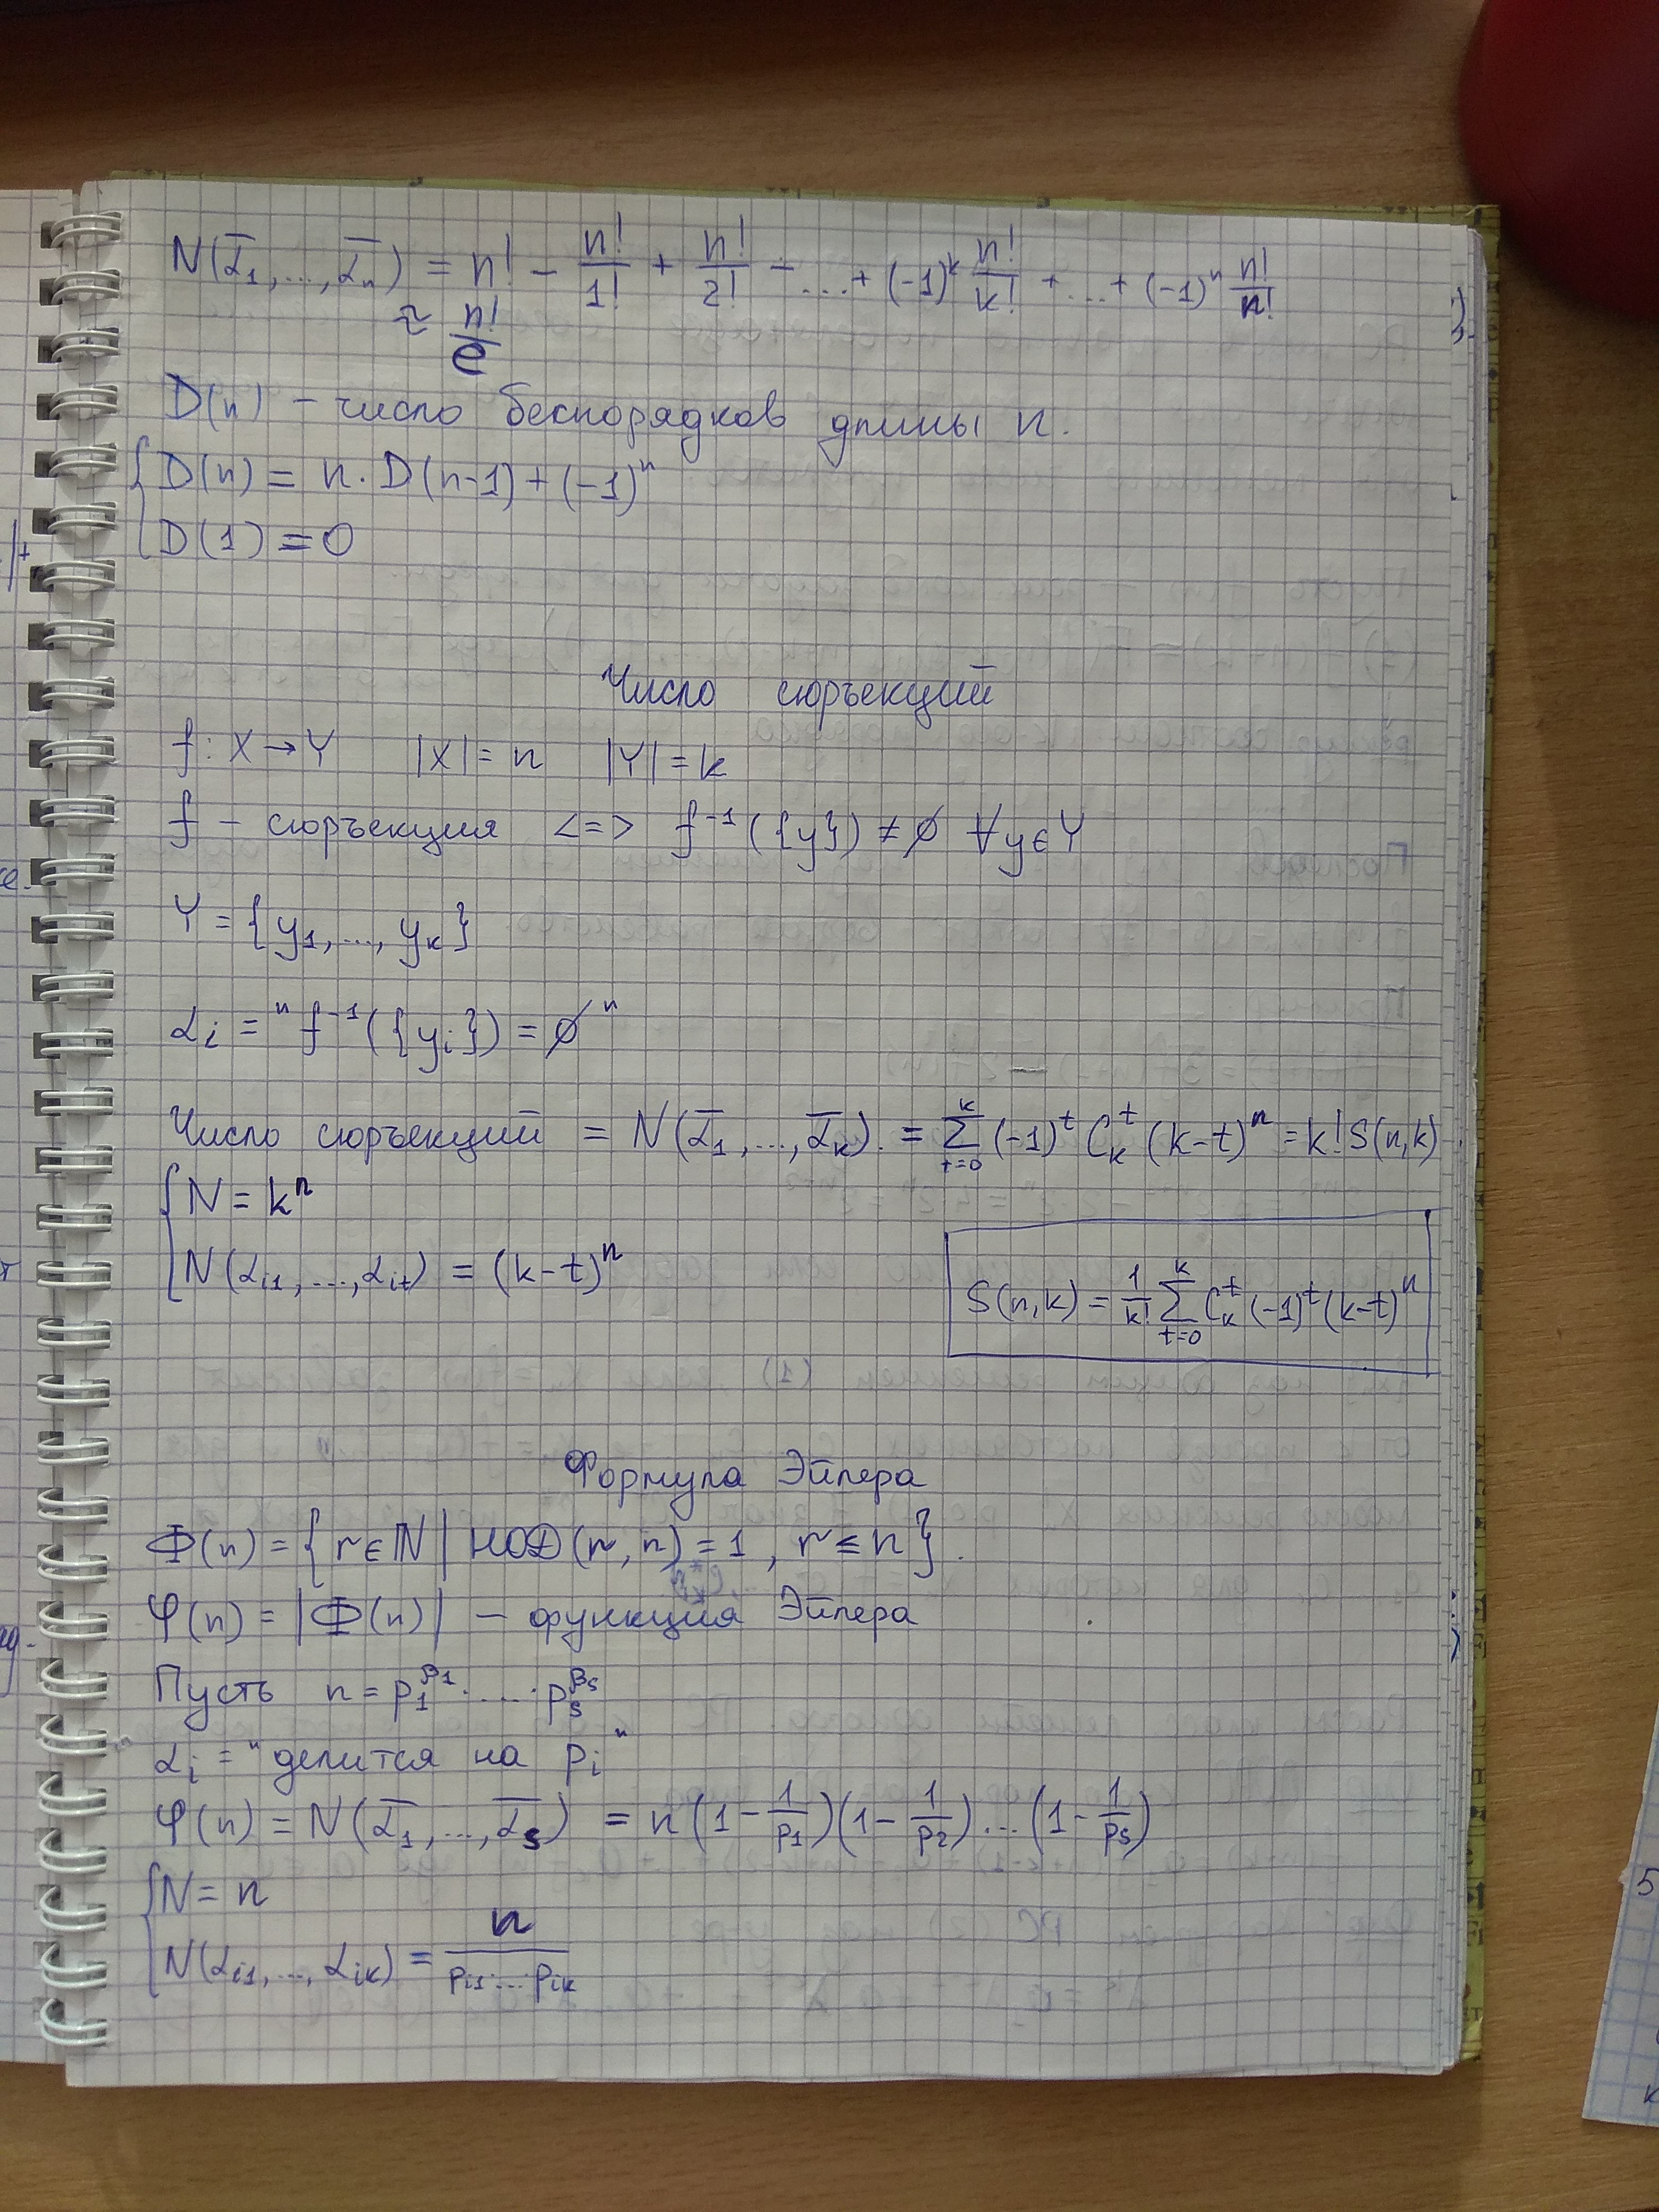 N(ᾱ₁,...,ᾱₙ) = n! − n!/1! + n!/2! − ... + (-1)ᵏ n!/k! + ... + (-1)ⁿ n!/n!
≈ n!/e
D(n) – число беспорядков длины n.
{ D(n) = n·D(n-1) + (-1)ⁿ
D(1) = 0
Число сюръекций
f: X → Y |X| = n |Y| = k
f – сюръекция <=> f⁻¹({y}) ≠ ∅ ∀y∈Y
Y = {y₁,..., yₖ}
αᵢ = "f⁻¹({yᵢ}) = ∅"
Число сюръекций = N(ᾱ₁,...,ᾱₖ). = Σ_{t=0}^{k} (-1)ᵗ C_k^t (k-t)ⁿ = k! S(n,k).
{ N = kⁿ
N(α_{i1},...,α_{it}) = (k-t)ⁿ
S(n,k) = 1/k! Σ_{t=0}^{k} C_k^t (-1)ᵗ (k-t)ⁿ
Формула Эйлера
Ф(n) = {r∈ℕ | НОД(r,n) = 1, r ≤ n}.
φ(n) = |Ф(n)| – функция Эйлера
Пусть n = p₁^{β₁}·...·p_s^{β_s}
αᵢ = "делится на pᵢ"
φ(n) = N(ᾱ₁,...,ᾱ_s) = n(1 - 1/p₁)(1 - 1/p₂)...(1 - 1/p_s)
{ N = n
N(α_{i1},...,α_{ik}) = n/(p_{i1}·...·p_{ik})